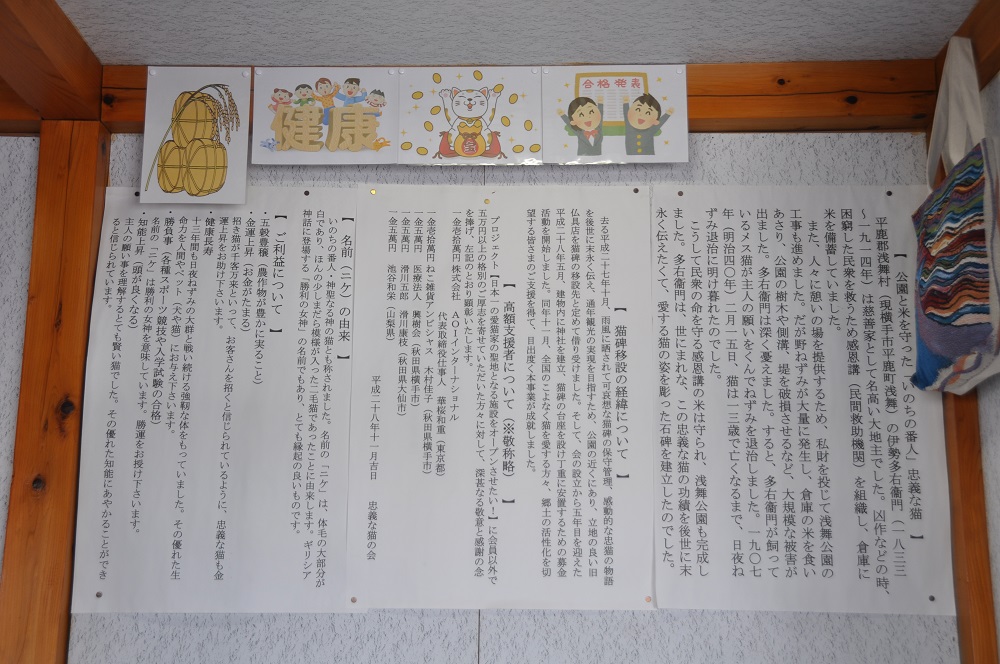 健康
合格発表
【 公園と米を守った「いのちの番人」忠義な猫 】
平鹿郡浅舞村（現横手市平鹿町浅舞）の伊勢多右衛門（一八三三
～一九一四年）は慈善家として名高い大地主でした。凶作などの時、
困窮した民衆を救うため感恩講（民間救助機関）を組織し、倉庫に
米を備蓄していました。
また、人々に憩いの場を提供するため、私財を投じて浅舞公園の
工事も進めました。だが野ねずみが大量に発生し、倉庫の米を食い
あさり、公園の樹木や側溝、堤を破損させるなど、大規模な被害が
出ました。多右衛門は深く憂えました。すると、多右衛門が飼って
いるメス猫が主人の願いをくんでねずみを退治しました。一九〇七
年（明治四〇年）二月一五日、猫は一三歳で亡くなるまで、日夜ね
ずみ退治に明け暮れたのでした。
こうして民衆の命を守る感恩講の米は守られ、浅舞公園も完成し
ました。多右衛門は、世にまれな、この忠義な猫の功績を後世に末
永く伝えたくて、愛する猫の姿を彫った石碑を建立したのでした。
【 猫碑移設の経緯について 】
去る平成二十七年十月、雨風に晒されて可哀想な猫碑の保守管理、感動的な忠猫の物語
を後世に末永く伝え、通年観光の実現を目指すため、公園の近くにあり、立地の良い旧
仏具店を猫碑の移設先と定めて借り受けました。そして、会の設立から五年目を迎えた
平成二十八年五月、建物内に神社を建立、猫碑の台座を設け丁重に安置するための募金
活動を開始しました。同年十一月、全国のこよなく猫を愛する方々、郷土の活性化を切
望する皆さまのご支援を得て、目出度く本事業が成就しました。
【 高額支援者について（※敬称略） 】
プロジェクト【日本一の愛猫家の聖地となる施設をオープンさせたい！】に会員以外で
五万円以上の格別のご厚志を寄せていただいた方々に対して、深甚なる敬意と感謝の念
を捧げ、左記のとおり顕彰いたします。
一金壱拾萬円 株式会社 ＡＯＩインターナショナル
代表取締役仕事人 華桜和重（東京都）
一金壱拾萬円 ねこ雑貨アンビシャス 木村佳子（秋田県横手市）
一金五萬円 医療法人 興樹会（秋田県横手市）
一金五萬円 滑川五郎 滑川康枝（秋田県大仙市）
一金五萬円 池谷和栄（山梨県）
平成二十八年十一月吉日 忠義な猫の会
【 名前（ニケ）の由来 】
いのちの番人・神聖なる猫とも称されました。名前の「ニケ」は、体毛の大部分が
白であり、ほんの少しまだら模様が入った二毛猫であったことに由来します。ギリシア
神話に登場する「勝利の女神」の名前でもあり、とても縁起の良いものです。
【 ご利益について 】
・五穀豊穣（農作物が豊かに実ること）
・金運上昇（お金がたまる）
招き猫が千客万来といって、お客さんを招くと信じられているように、忠義な猫も金
運上昇をお助けます。
・健康長寿
十三年間も日夜ねずみの大群と戦い続ける強靭な体をもっていました。その優れた生
命力を人間やペット（犬や猫）にお与え下さいます。
・勝負事（各種スポーツ競技や入学試験の合格）
名前の「ニケ」は勝利の女神を意味しています。勝運をお授け下さいます。
・知能上昇（頭が良くなる）
主人の願い事を理解するとても賢い猫でした。その優れた知能にあやかることができ
ると信じられています。